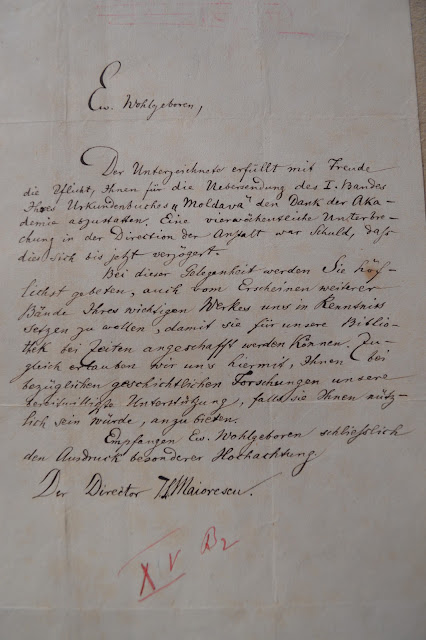 Ew. Wohlgeboren,
Der Unterzeichnete erfüllt mit Freude
die Pflicht, Ihnen für die Uebersendung des I. Bandes
Ihres Urkundenbuches „Moldawa" den Dank der Aka-
demie abzustatten. Eine vierwöchentliche Unterbre-
chung in der Direction der Anstalt war Schuld, daß
dies sich bis jetzt verzögert.
Bei dieser Gelegenheit werden Sie höf-
lichst gebeten, auch vom Erscheinen weiterer
Bände Ihres wichtigen Werkes uns in Kenntniss
setzen zu wollen, damit sie für unsere Biblio-
thek bei Zeiten angeschafft werden können. Zu-
gleich erlauben wir uns hiermit, Ihnen bei
bezüglichen geschichtlichen Forschungen unsere
bereitwilligste Unterstützung, falls sie Ihnen nütz-
lich sein würde, anzubieten.
Empfangen Ew. Wohlgeboren schliesslich
den Ausdruck besonderer Hochachtung
Der Director Maiorescu.
XV B2